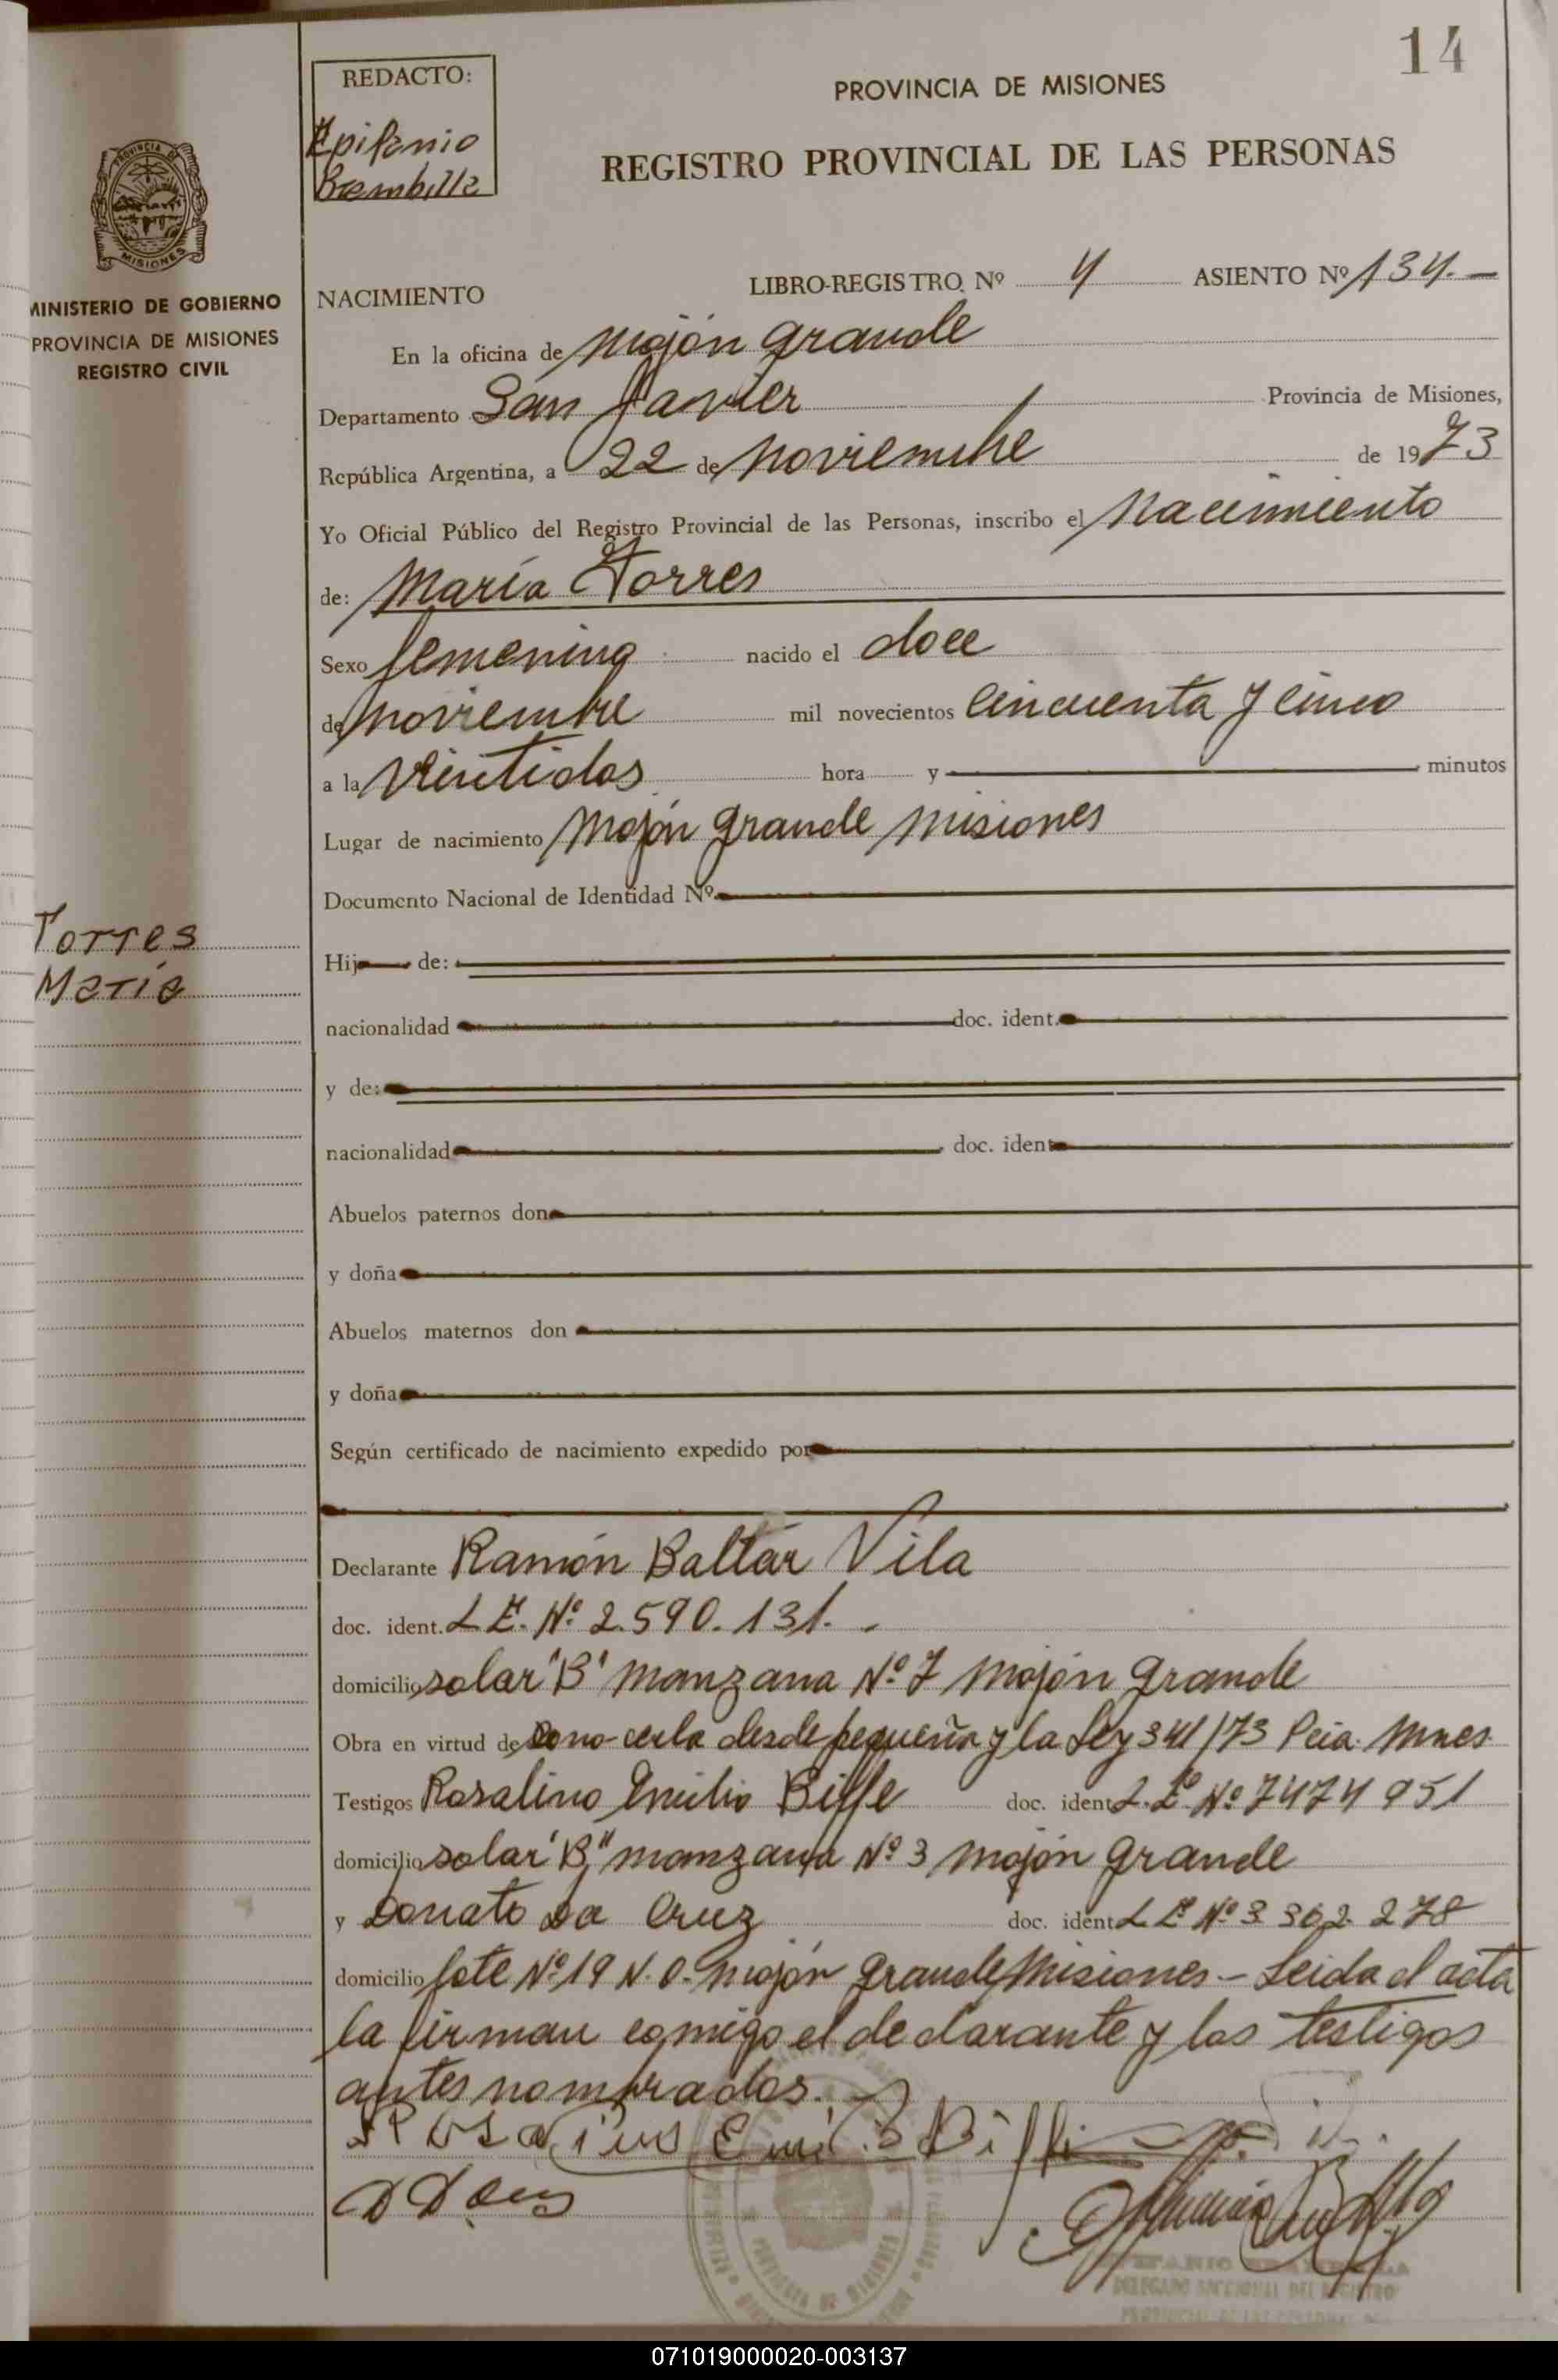 14
REDACTO:
Epifanio
Brambilla
PROVINCIA DE MISIONES
REGISTRO PROVINCIAL DE LAS PERSONAS
PROVINCIA DE
MISIONES
MINISTERIO DE GOBIERNO
PROVINCIA DE MISIONES
REGISTRO CIVIL
NACIMIENTO
LIBRO-REGISTRO Nº 4 ASIENTO Nº 134.-
En la oficina de Mojón Grande
Departamento San Javier Provincia de Misiones,
República Argentina, a 22 de Noviembre de 1973
Yo Oficial Público del Registro Provincial de las Personas, inscribo el Nacimiento
de: María Torres
Sexo femenino nacido el doce
de noviembre mil novecientos cincuenta y cinco
a la veintidos hora y minutos
Lugar de nacimiento Mojón Grande Misiones
Documento Nacional de Identidad Nº
Torres
María
Hij de:
nacionalidad doc. ident.
y de:
nacionalidad doc. ident
Abuelos paternos don
y doña
Abuelos maternos don
y doña
Según certificado de nacimiento expedido por
Declarante Ramón Baltar Vila
doc. ident. L E. Nº 2.590.131.-
domicilio solar "B" manzana Nº 7 Mojón Grande
Obra en virtud de cono-cerla desde pequeña y la Ley 341/73 Pcia. Mnes.
Testigos Rosalino Emilio Biffe doc. ident L.E. Nº 7474951
domicilio solar "B" manzana Nº 3 Mojón Grande
y Donato Da Cruz doc. ident L E Nº 3 302.278
domicilio lote Nº 19 N.O. Mojón Grande Misiones.- Leida el acta
la firman comigo el declarante y los testigos
antes nombrados.
DELEGADO SECCIONAL DEL REGISTRO
071019000020-003137